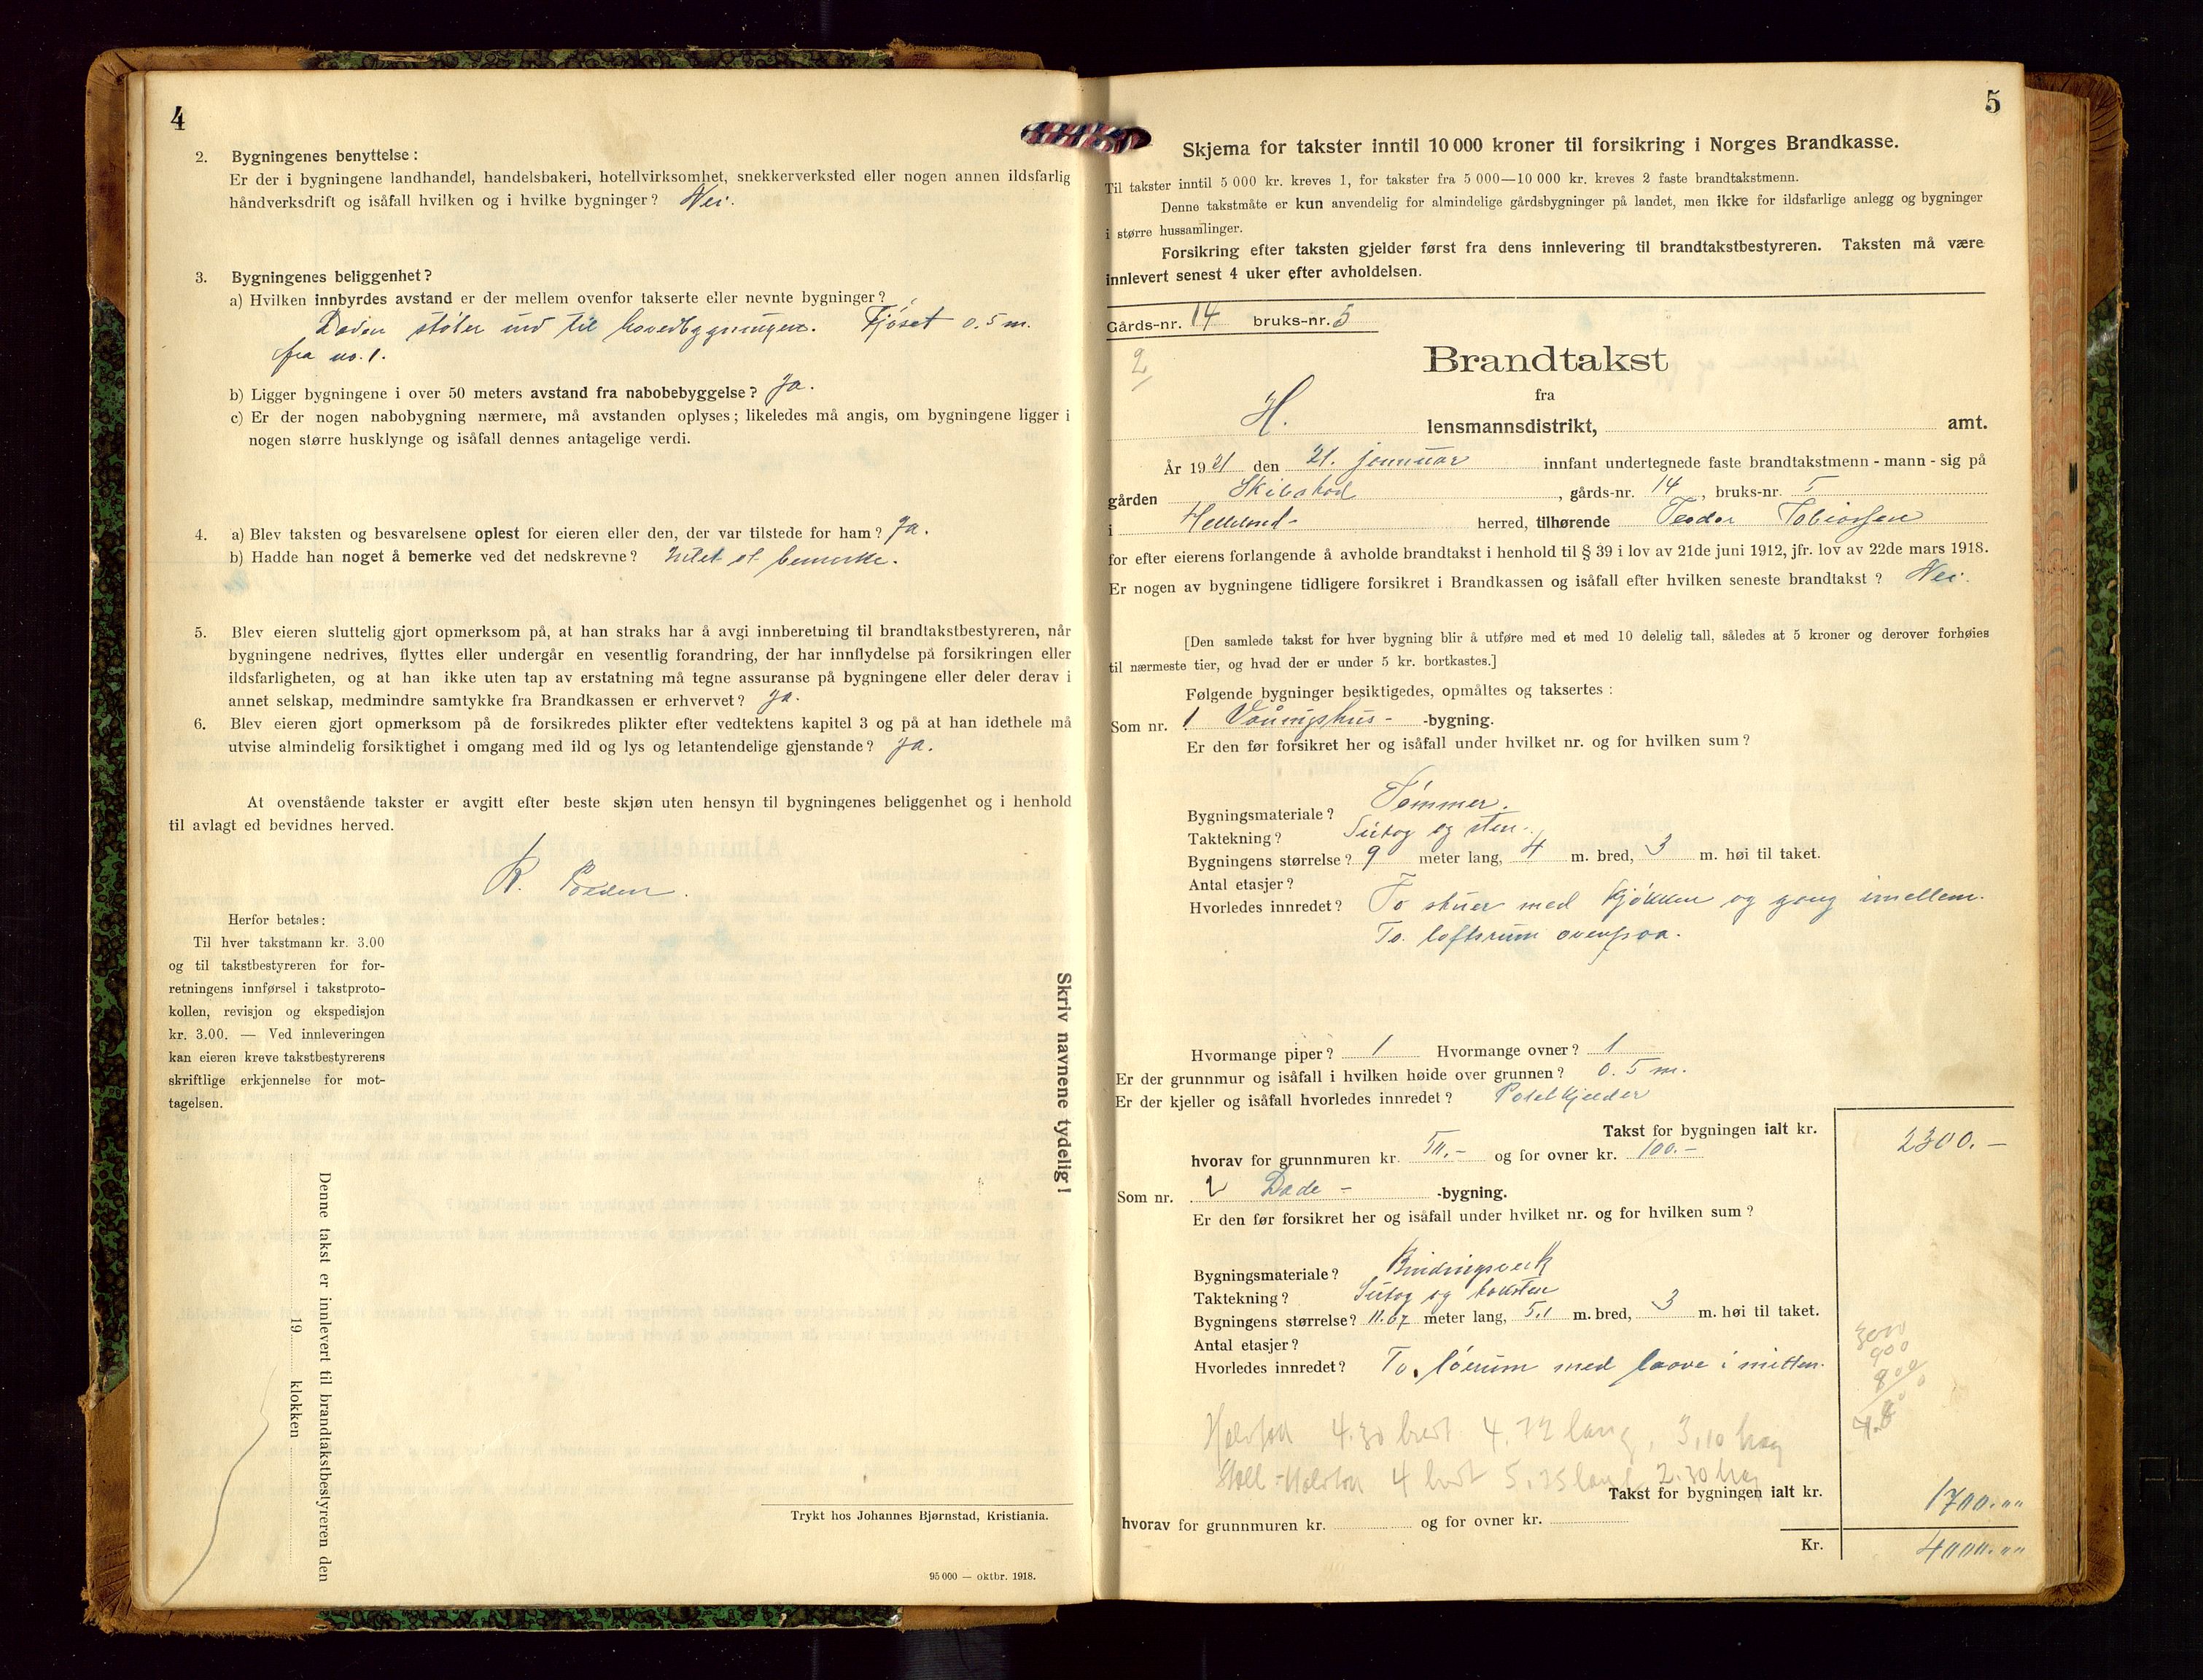 4
2. Bygningenes benyttelse:
Er der i bygningene landhandel, handelsbakeri, hotellvirksomhet, snekkerverksted eller nogen annen ildsfarlig
håndverksdrift og isåfall hvilken og i hvilke bygninger? Nei.
3. Bygningenes beliggenhet?
a) Hvilken innbyrdes avstand er der mellem ovenfor takserte eller nevnte bygninger?
Laden støter ind til hovedbygningen. Fjøset 0.5 m.
fra no. 1.
b) Ligger bygningene i over 50 meters avstand fra nabobebyggelse? Ja.
c) Er der nogen nabobygning nærmere, må avstanden oplyses; likeledes må angis, om bygningene ligger i
nogen større husklynge og isåfall dennes antagelige verdi.
4. a) Blev taksten og besvarelsene oplest for eieren eller den, der var tilstede for ham? Ja.
b) Hadde han noget å bemerke ved det nedskrevne? Intet at bemerke.
5. Blev eieren sluttelig gjort opmerksom på, at han straks har å avgi innberetning til brandtakstbestyreren, når
bygningene nedrives, flyttes eller undergår en vesentlig forandring, der har innflydelse på forsikringen eller
ildsfarligheten, og at han ikke uten tap av erstatning må tegne assuranse på bygningene eller deler derav i
annet selskap, medmindre samtykke fra Brandkassen er erhvervet? Ja.
6. Blev eieren gjort opmerksom på de forsikredes plikter efter vedtektens kapitel 3 og på at han idethele må
utvise almindelig forsiktighet i omgang med ild og lys og letantendelige gjenstande? Ja.
At ovenstående takster er avgitt efter beste skjøn uten hensyn til bygningenes beliggenhet og i henhold
til avlagt ed bevidnes herved.
R.
Herfor betales:
Til hver takstmann kr. 3.00
og til takstbestyreren for for-
retningens innførsel i takstproto-
kollen, revisjon og ekspedisjon
kr. 3.00. — Ved innleveringen
kan eieren kreve takstbestyrerens
skriftlige erkjennelse for mot-
tagelsen.
Denne takst er innlevert til brandtakstbestyreren den
19 klokken
Skriv navnene tydelig!
Trykt hos Johannes Bjørnstad, Kristiania.
95 000 — oktbr. 1918.
5
Skjema for takster inntil 10 000 kroner til forsikring i Norges Brandkasse.
Til takster inntil 5 000 kr. kreves 1, for takster fra 5 000—10 000 kr. kreves 2 faste brandtakstmenn.
Denne takstmåte er kun anvendelig for almindelige gårdsbygninger på landet, men ikke for ildsfarlige anlegg og bygninger
i større hussamlinger.
Forsikring efter taksten gjelder først fra dens innlevering til brandtakstbestyreren. Taksten må være
innlevert senest 4 uker efter avholdelsen.
Gårds-nr. 14 bruks-nr. 5
2
Brandtakst
fra
H. lensmannsdistrikt, amt.
År 1921 den 21. januar innfant undertegnede faste brandtakstmenn - mann - sig på
gården Skibstad, gårds-nr. 14, bruks-nr. 5
i Helleland herred, tilhørende Teodor Tobiassen
for efter eierens forlangende å avholde brandtakst i henhold til § 39 i lov av 21de juni 1912, jfr. lov av 22de mars 1918.
Er nogen av bygningene tidligere forsikret i Brandkassen og isåfall efter hvilken seneste brandtakst? Nei.
[Den samlede takst for hver bygning blir å utføre med et med 10 delelig tall, således at 5 kroner og derover forhøies
til nærmeste tier, og hvad der er under 5 kr. bortkastes.]
Følgende bygninger besiktigedes, opmåltes og taksertes:
Som nr. 1 Våningshus- -bygning.
Er den før forsikret her og isåfall under hvilket nr. og for hvilken sum?
Bygningsmateriale? Tømmer.
Taktekning? Sutag og sten.
Bygningens størrelse? 9 meter lang, 4 m. bred, 3 m. høi til taket.
Antal etasjer?
Hvorledes innredet? To stuer med kjøkken og gang imellem.
To loftsrum ovenpaa.
Hvormange piper? 1 Hvormange ovner? 1
Er der grunnmur og isåfall i hvilken høide over grunnen? 0.5 m.
Er der kjeller og isåfall hvorledes innredet? Potetkjelder
Takst for bygningen ialt kr. 2300.—
hvorav for grunnmuren kr. 50.— og for ovner kr. 100.—
Som nr. 2 Lade- -bygning.
Er den før forsikret her og isåfall under hvilket nr. og for hvilken sum?
Bygningsmateriale? Bindingsverk
Taktekning? Sutag og taksten
Bygningens størrelse? 11.67 meter lang, 5.1 m. bred, 3 m. høi til taket.
Antal etasjer?
Hvorledes innredet? To løerum med laave i mitten.
3000
900
800
4.30 bredt 4.72 lang, 3,10 høg
4 bredt 5.35 lang 2.30 høg
Takst for bygningen ialt kr. 1700.00
hvorav for grunnmuren kr. og for ovner kr.
Kr. 4000.00